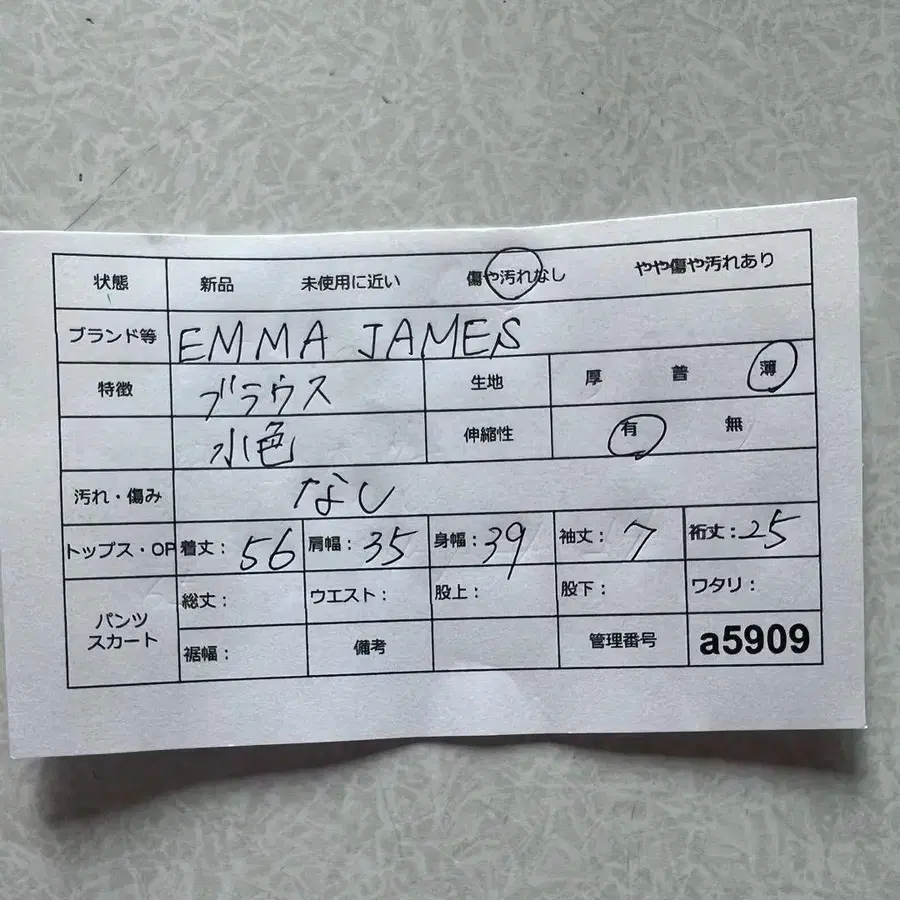 状態 新品 未使用に近い 傷や汚れなし やや傷や汚れあり
ブランド等 EMMA JAMES
特徴 ブラウス 生地 厚 普 薄
水色 伸縮性 有 無
汚れ・傷み なし
トップス・OP 着丈：56 肩幅：35 身幅：39 袖丈：7 裄丈：25
パンツ スカート 総丈： ウエスト： 股上： 股下： ワタリ：
裾幅： 備考 管理番号 a5909